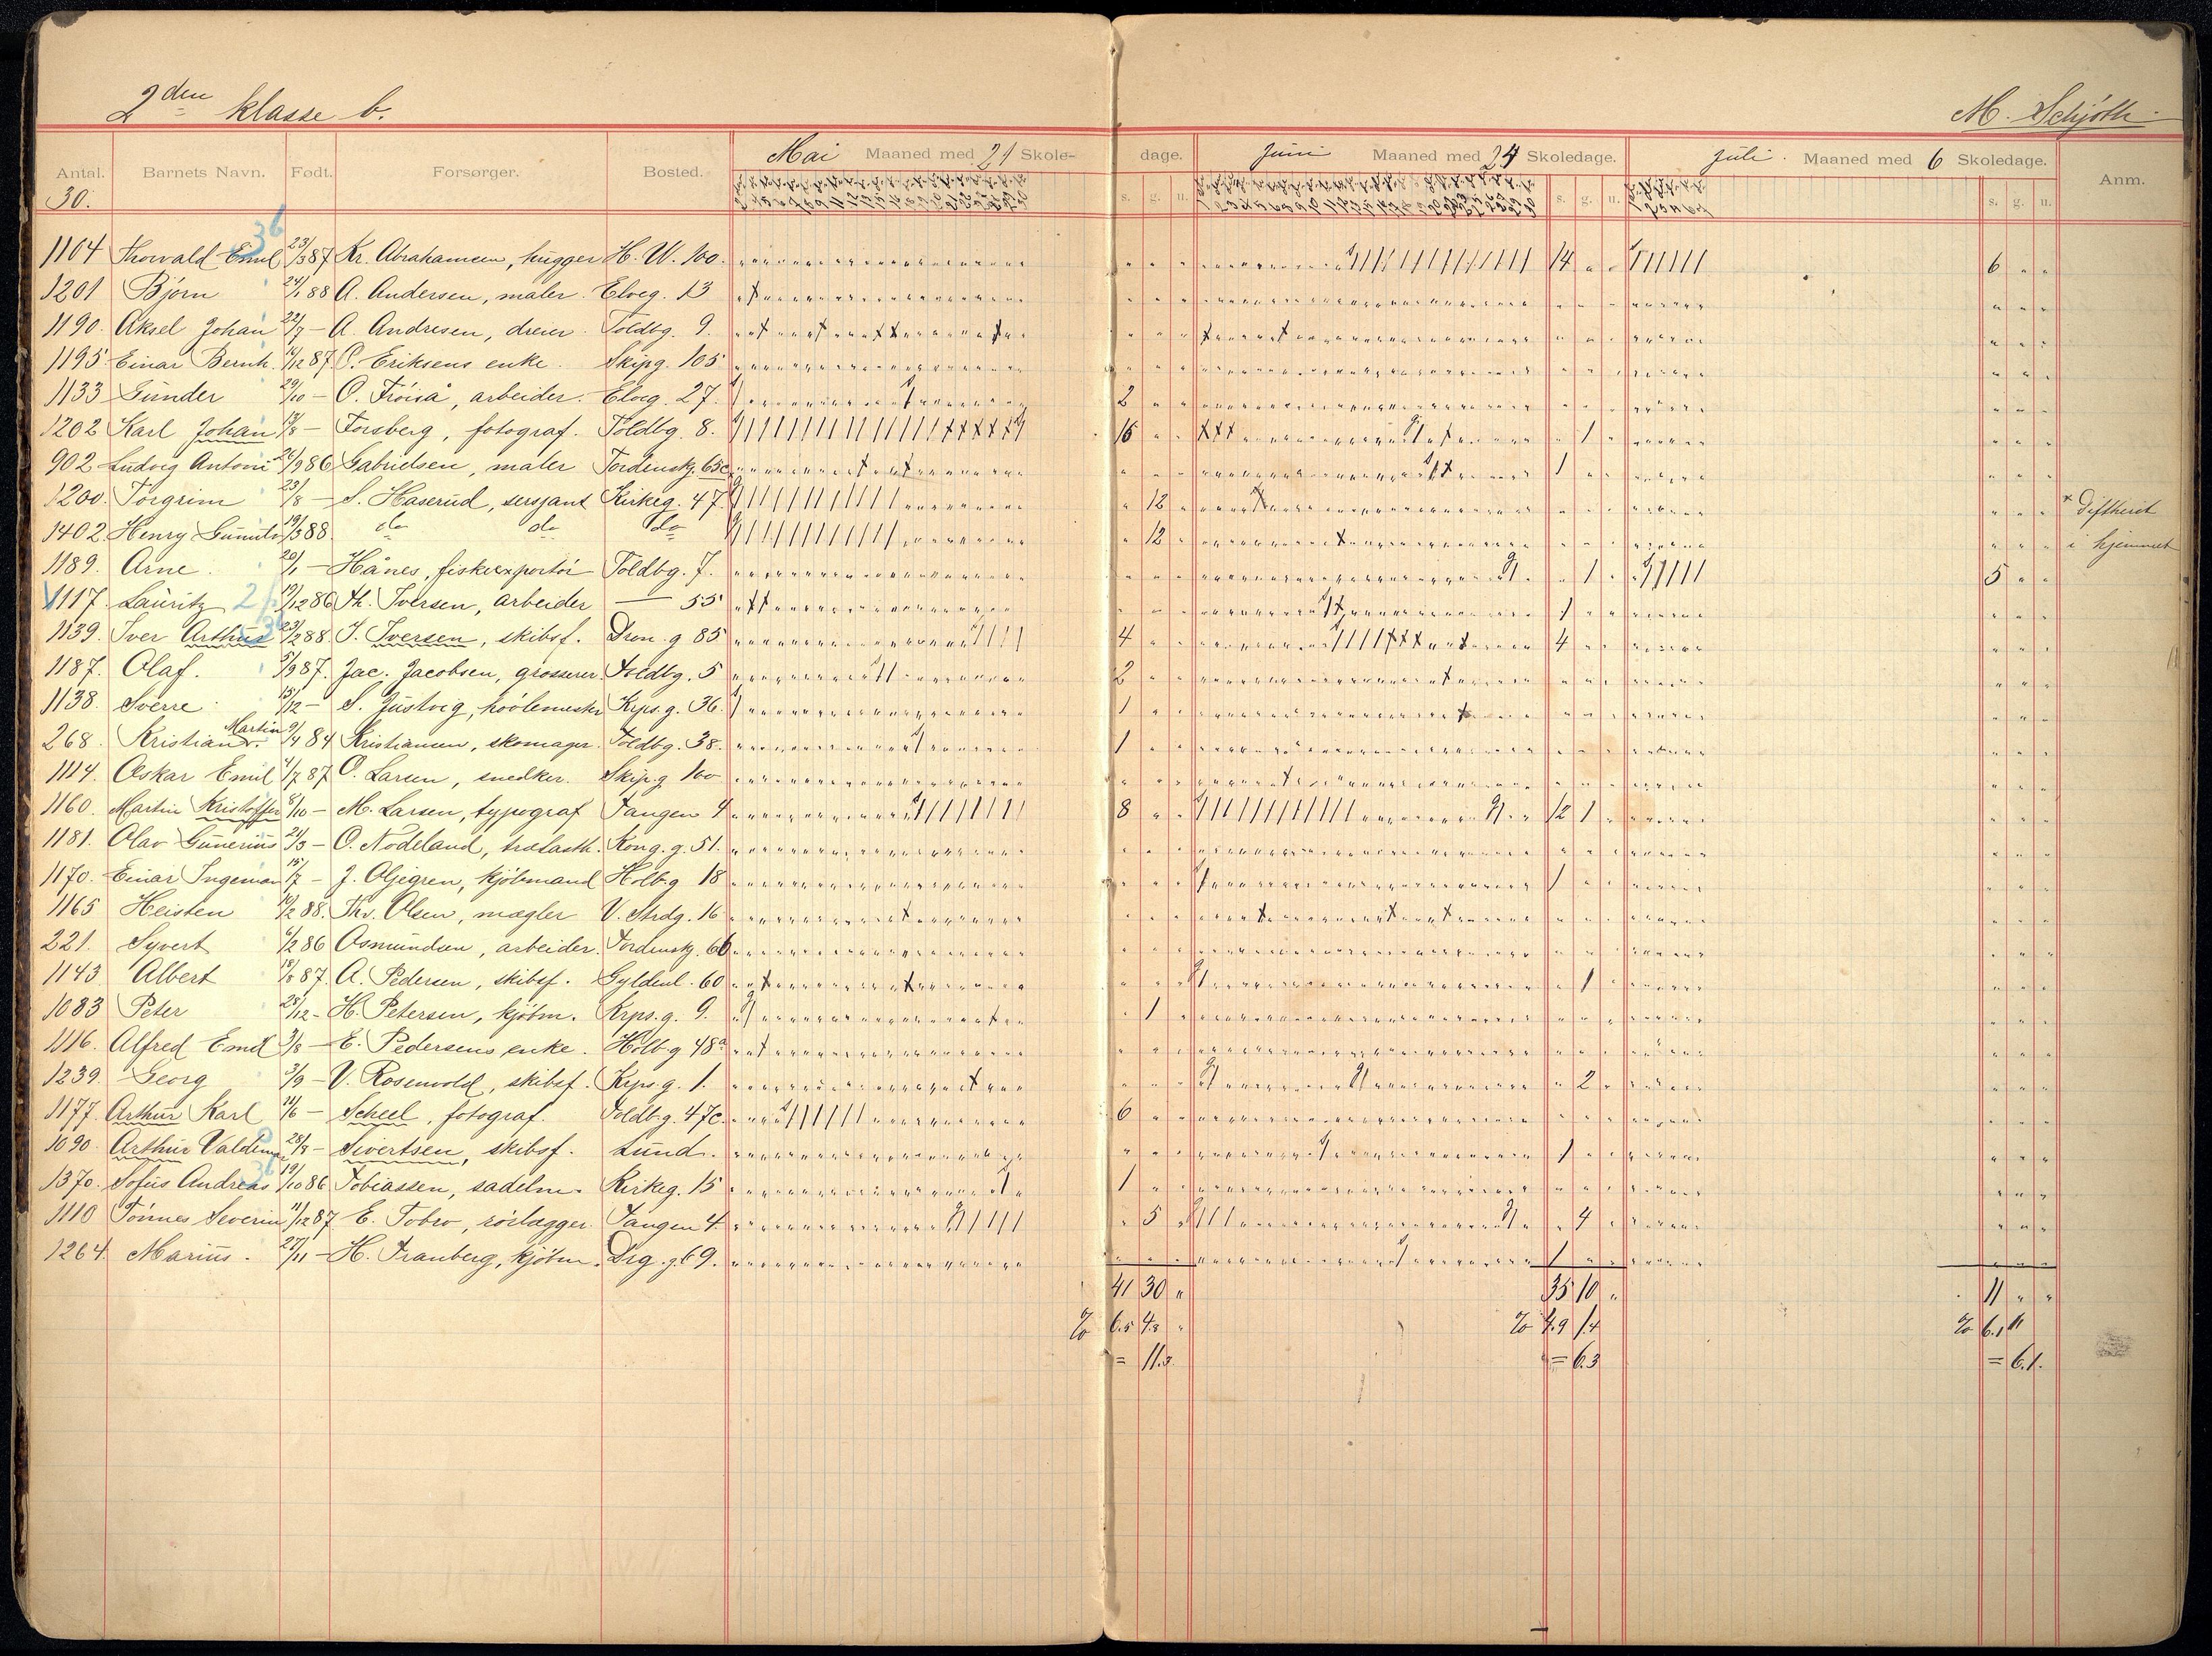 2den klasse b.
M. Schjøth
Antal. Barnets Navn. Født. Forsørger. Bosted. Mai Maaned med 21 Skole- dage. Juni Maaned med 24 Skoledage. Juli. Maaned med 6 Skoledage. Anm.
30. s. g. u. s. g. u. s. g. u.
36
1104 Thorvald Emil 23/3 87 Kr. Abrahamsen, hugger H. W. 100. 14 6
1201 Bjørn 24/1 88 A. Andersen, maler. Elveg. 13
1190. Aksel Johan 22/7 — A. Andresen, dreier. Toldbg. 9.
1195. Einar Bernh. 16/12 87. O. Eriksens enke. Skipg. 105
1133 Gunder 29/10 — O. Frøiså, arbeider. Elveg. 27. 2
1202 Karl Johan 13/8 — Forsberg, fotograf. Toldbg. 8. 16 1
902 Ludvig Antoni 26/9 86 Gabrielsen, maler Tordenskj. 65c 1
1200. Torgrim 23/8 — S. Haserud, sersjant Kirkeg. 47. 12 * Difterit
1402. Henry 19/3 88. do do do 12 i hjemmet
1189. Arne. 20/1 — Hånes, fiskeexportør Toldbg. 7. 1 5
1117. Lauritz 19/12 86 Th. Iversen, arbeider — 55 1
1139. Iver Arthur 23/2 88. J. Iversen, skibsf. Dron. g 85 4 4
1187. Olaf. 5/9 87. Jac. Jacobsen, grosserer. Toldbg. 5 2
1138. Sverre. 15/12 — S. Justvig, Krps. g. 36. 1
268. Kristian Martin. 9/4 84 Kristiansen, skomager. Toldbg. 38. 1
1114. Oskar Emil 4/7 87 O. Larsen, snedker. Skipg 100
1160. Martin Kristoffer 8/10 — M. Larsen, typograf Tangen 4 8 12 1
1181. Olav Gunerius 24/3 — O. Nodeland, Kong. g. 51.
1170. Einar Ingeman 15/7 — J. Oljegren, kjøbmand Holbg 18 1
1165 Heisten 16/2 88. Thv. Olsen, mægler V. Strdg. 16
221. Syvert 6/2 86 Osmundsen, arbeider. Tordenskj. 66
1143 Albert 18/8 87. A. Pedersen, skibsf. Gyldenl. 60 1
1083 Peter 28/12 - H. Petersen, kjøbm. Krps. g. 9. 1
1116. Alfred Emil 3/8 — E. Pedersens enke. Holb-g 48a
1239. Georg 3/9 — V. Rosenvold, skibsf. Krps. g. 1. 2
1177. Arthur Karl 14/6 — Scheel, fotograf. Toldbg. 47c. 6
1090. Arthur Valdemar 28/9 — Sivertsen, skibsf. Lund. 1
36
1370. Sofus Andreas 19/10 86 Tobiassen, sadelm. Kirkeg. 15 1
1110 Tønnes Severin 11/12 87 E. Tobro, rørlægger. Tangen 4. 5 4
1264. Marius. 27/11 — H. Tranberg, kjøbm. Drg. g. 69. 1
41 30 " 35 10 " 11 " "
% 6.5 4.8 % 4.9 1.4 % 6.1 "
= 11.3. = 6.3 = 6.1.